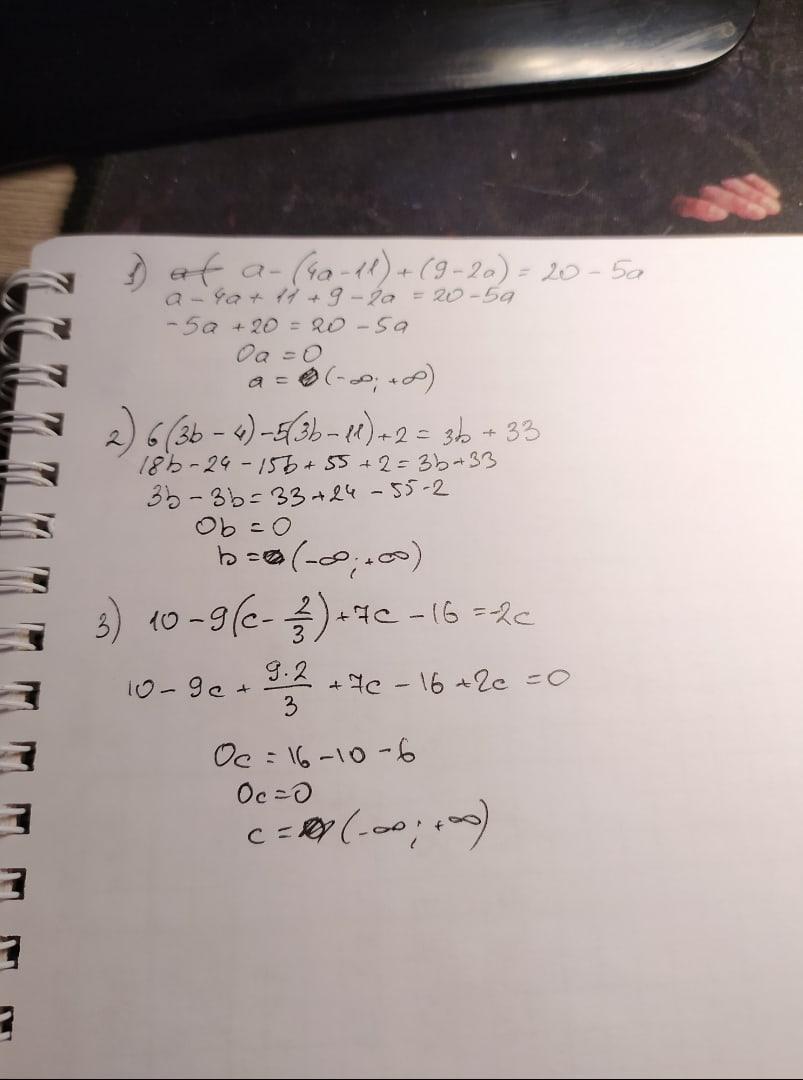 1) a - (4a - 11) + (9 - 2a) = 20 - 5a
a - 4a + 11 + 9 - 2a = 20 - 5a
-5a + 20 = 20 - 5a
0a = 0
a = (-∞; +∞)
2) 6(3b - 4) - 5(3b - 11) + 2 = 3b + 33
18b - 24 - 15b + 55 + 2 = 3b + 33
3b - 3b = 33 + 24 - 55 - 2
0b = 0
b = (-∞; +∞)
3) 10 - 9(c - 2/3) + 7c - 16 = -2c
10 - 9c + 9·2/3 + 7c - 16 + 2c = 0
0c = 16 - 10 - 6
0c = 0
c = (-∞; +∞)